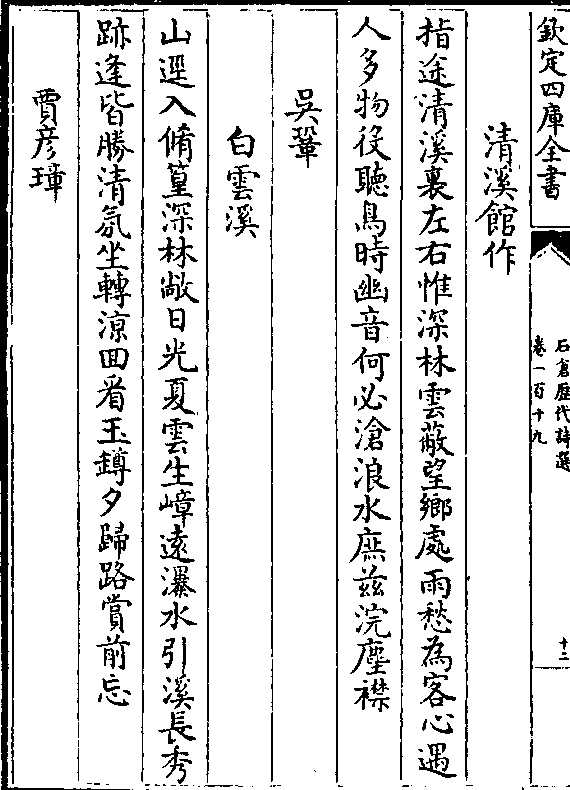 欽定四庫全書
石倉歷代詩選
卷一百十九
十二
清溪館作
指途清溪裏左右惟深林雲蔽望鄉處雨愁為客心遇
人多物役聽鳥時幽音何必滄浪水庶兹浣塵襟
吳鞏
白雲溪
山逕入脩篁深林敞日光夏雲生嶂遠瀑水引溪長秀
跡逢皆勝清氛坐轉涼回看玉罇夕歸路賞前忘
賈彦璋